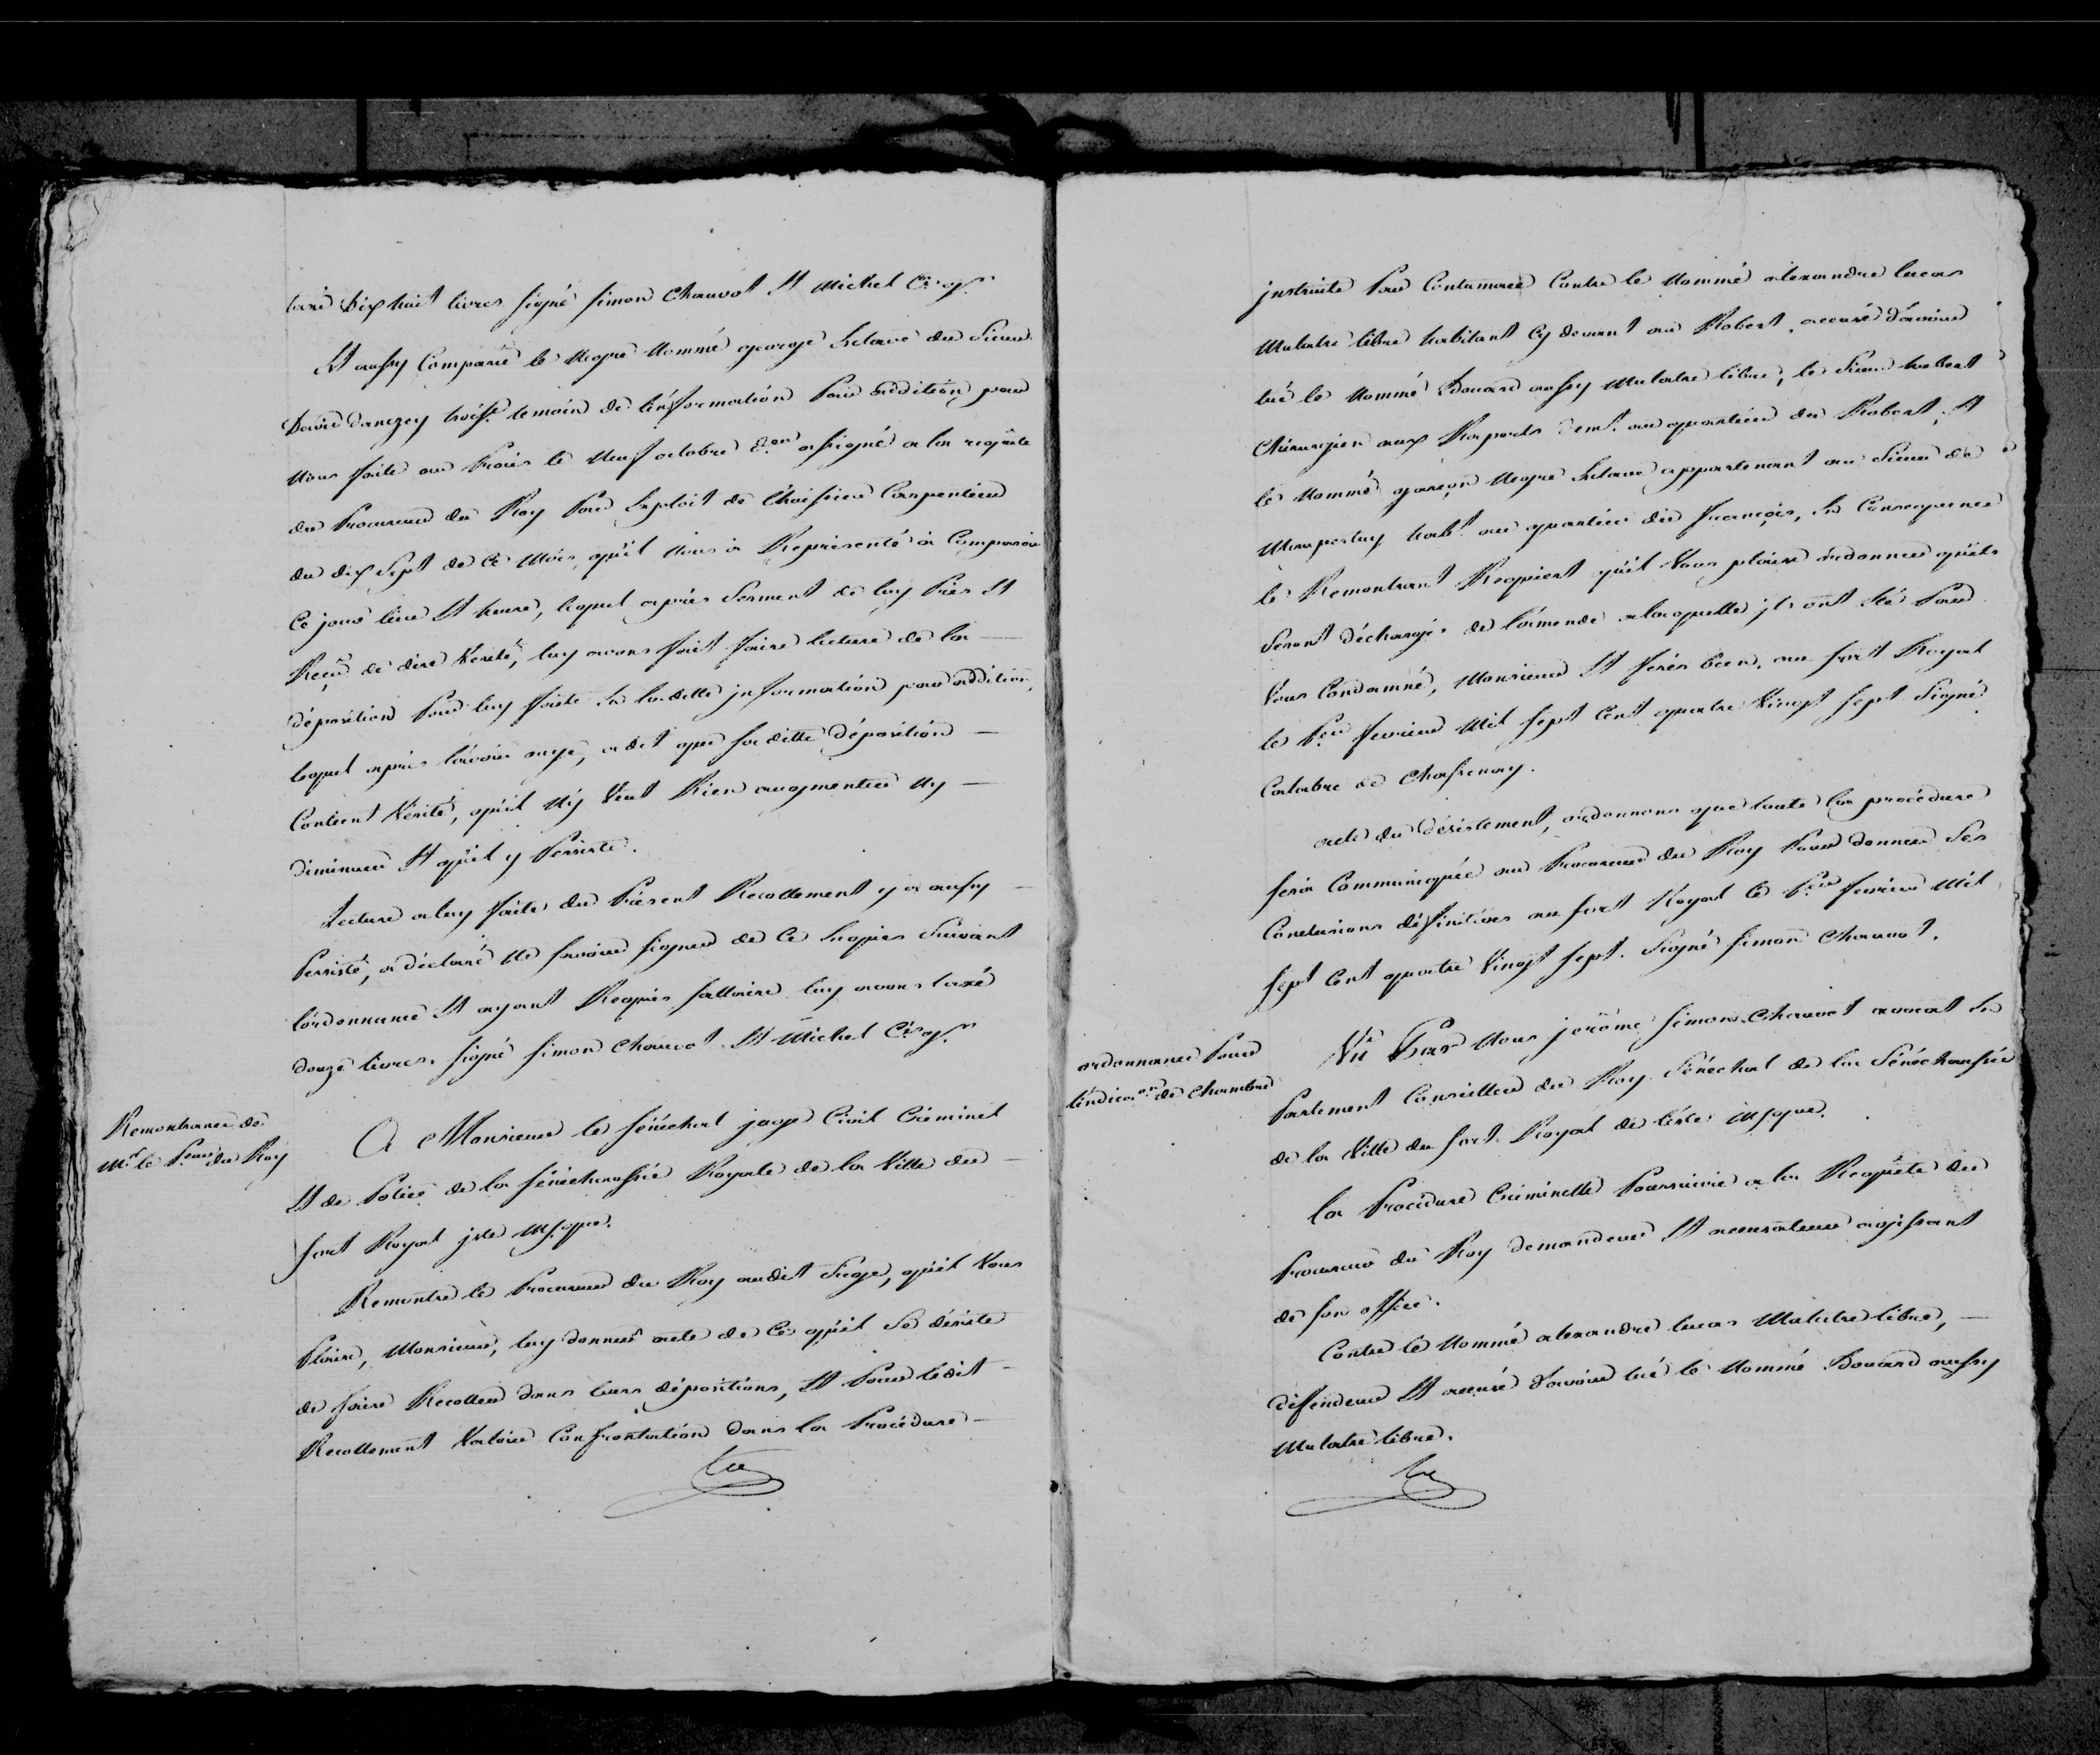 taxé Dix huit livres signé simon Chauvot Et Michel Cis gr
Et aussy Comparu le Negre Nommé george Esclave du Sieur
David danezey trois.e temoin de l'information Par addition, par
Nous faite au Trois le Neuf octobre d.er assigné a la requête
du Procureur du Roy Par Exploit de l'huissier Carpentier
du dix Sept de Ce Mois, qu'il Nous a Représenté à Comparoir
Ce jour lieu Et heure, lequel après Serment de luy Pris Et
Reçu de dire Verité, luy avons fait faire lecture de la —
déposition Par luy faite En la ditte jnformation par addition,
lequel après l'avoir ouye, a dit que sa ditte déposition —
Contient Vérité, qu'il n'y Veut Rien augmenter Ny —
diminuer Et qu'il y Persiste.
Lecture a luy faite du Présent Recollement y a aussy —
Persisté, a déclaré Ne savoir signer de Ce Enquis Suivant
l'ordonnance Et ayant Requis sallaire luy avons taxé
douze livres. signé simon Chauvot Et Michel Cis gr
Remontrance de
Mr. le P.eur du Roy
A Monsieur le sénéchal juge Civil Criminel
Et de Police de la sénéchaussée Royale de la Ville du —
fort Royal jsle Mque.
Remontre le Procureur du Roy audit Siege, qu'il Vous
Plaise, Monsieur, luy donner acte de Ce qu'il Se désiste
de faire Recoller dans leurs dépositions, Et Pour ledit —
Recollement Valoir Confrontation dans la Procédure —
jnstruite Par Contumace Contre le Nommé alexandre lucas
Mulatre libre habitant Cy devant au Robert, accusé d'avoir
tué le Nommé Edouard aussy Mulatre libre, le Sieur hubert
Chirurgien aux Raports dem.t au quartier du Robert, Et
le Nommé garçon Negre Esclave appartenant au Sieur de
Maupertuy hab.t au quartier du françois, En Consequence
le Remontrant Requiert qu'il Vous plaise ordonner qu'ils
Seront déchargés de l'amende a laquelle jls ont Eté Par
Vous Condamné, Monsieur Et ferés bien. au fort Royal
le P.er fevrier Mil sept Cent quatre Vingt sept Signé
Calabre de Chafrenay.
acte du désistement, ordonnons que toute la procédure
sera Communiquée au Procureur du Roy Pour donner Ses
Conclusions définitives au fort Royal Ce P.er fevrier Mil
sept Cent quatre Vingt sept. Signé simon Chauvot.
ordonnance Pour
l'indica.on de Chambre
Vû Par Nous jerôme simon Chauvot avocat En
Parlement Conseiller du Roy Sénéchal de la Sénéchaussée
de la Ville du fort Royal de l'isle Mque.
la Procédure Criminelle Poursuivie a la Requête du
Procureur du Roy demandeur Et accusateur agissant
de son office.
Contre le Nommé alexandre lucas Mulatre libre, —
défendeur Et accusé d'avoir tué le Nommé Edouard aussy
Mulatre libre.